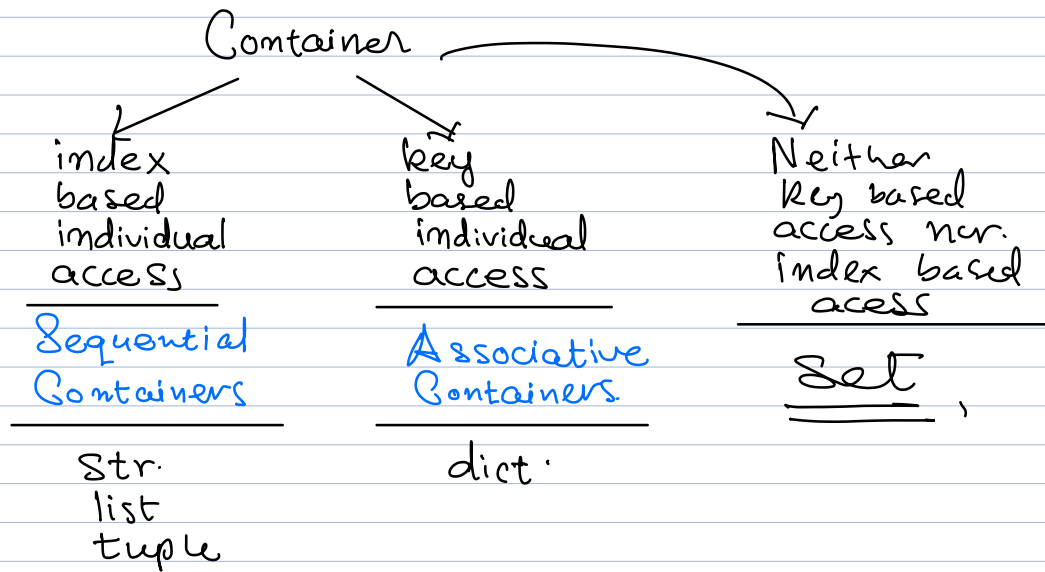 Container
index
based
individual
access
Sequential
Containers
str.
list
tuple
key
based
individual
access
Associative
Containers.
dict.
Neither
key based
access nor.
index based
acess
Set,